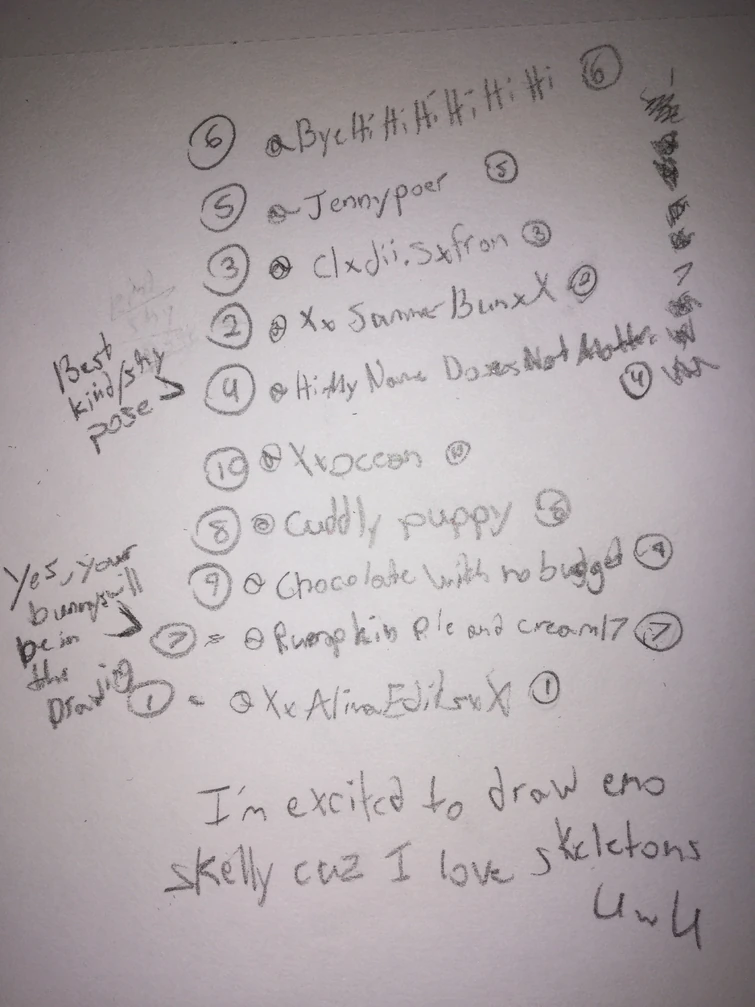 6 @ByeHiHiHiHiHiHi 6
5 @Jennypoer 5
3 @Clxdii.sxfron 3
2 @XxSummerBunxX 2
Best
kind/shy
pose
4 @HiMyNameDoxesNotMatter 4
10 @Xxocean 10
8 @Cuddly puppy 8
9 @Chocolate with no budget 9
Yes, your
bunny will
be in
the
Drawing
7 = @Pumpkin Pie and cream17 7
1 = @XxAlinaEditsxX 1
I'm excited to draw emo
skelly cuz I love skeletons
UwU